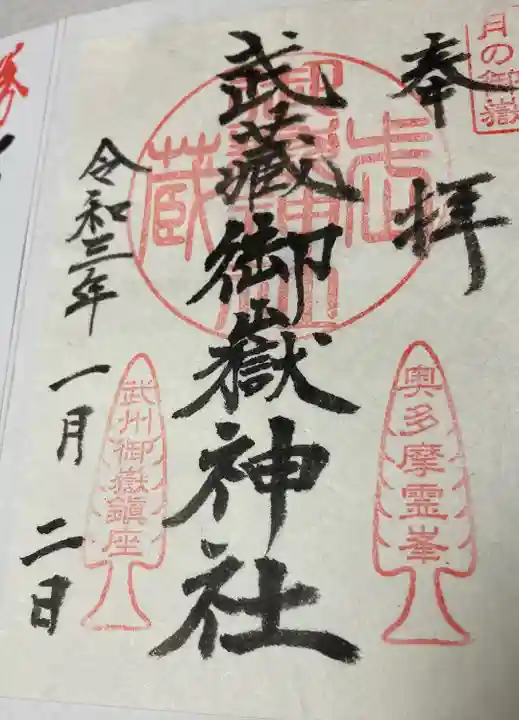 月の御嶽
奉拝
奥多摩霊峯
武蔵御嶽神社
武州御嶽鎮座
令和三年一月二日